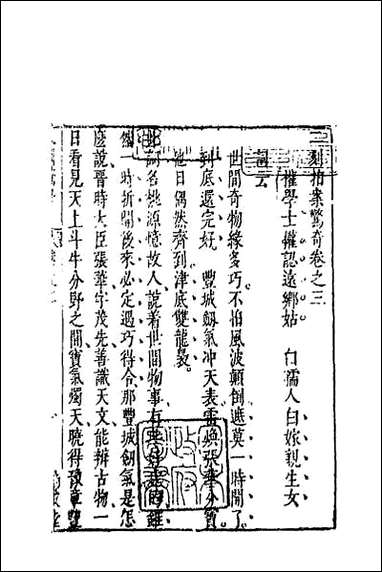 二刻拍案驚奇卷之三
權學士權認遠鄉姑　白孺人白嫁親生女
詞云
世間奇物緣多巧不怕風波顛倒遮莫一時開了
到底還完好　豐城劍氣冲天表雷煥張華分寶
他日偶然齊到津底雙龍裊
此詞名桃源憶故人說着世間物事有
然一時折開後來必定遇巧得合那豐城劍氣是怎
麽說晉時大臣張華字茂先善識天文能辯古物一
日看見天上斗牛分野之間寶氣燭天曉得豫章豐